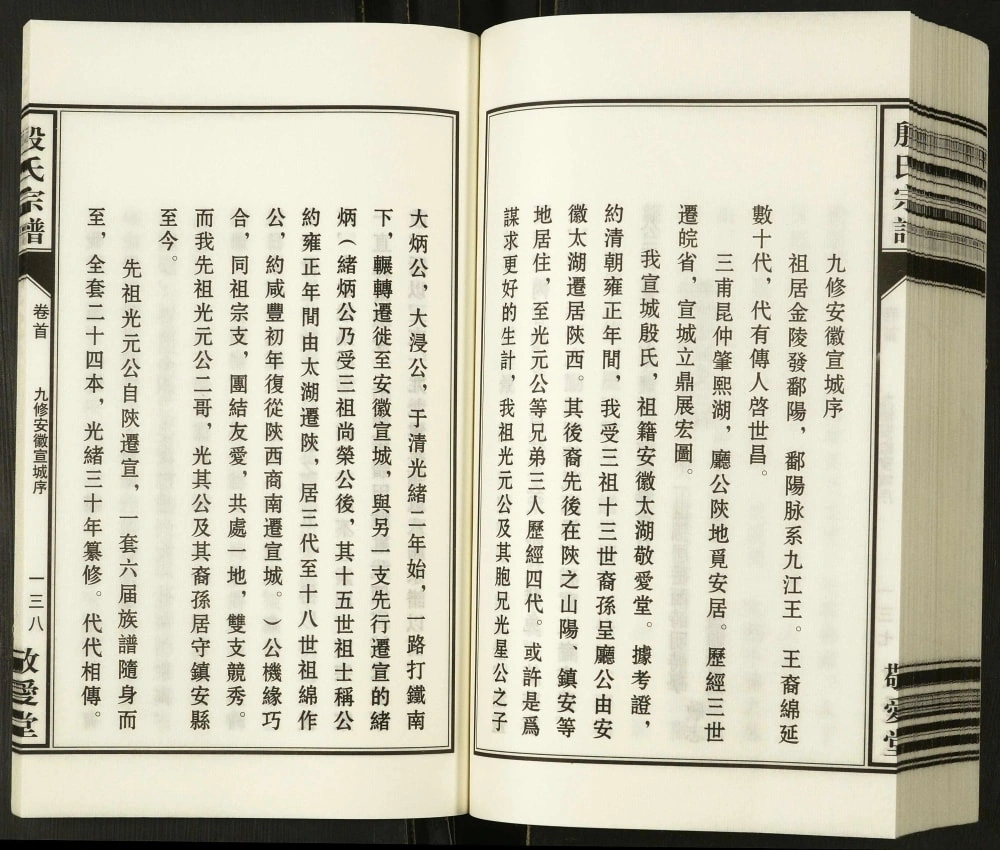 殷氏宗譜
敬愛堂
九修安徽宣城序
祖居金陵發鄱陽，鄱陽脉系九江王。王裔綿延
數十代，代有傳人啓世昌。
三甫昆仲肇熙湖，廳公陝地覓安居。歷經三世
遷皖省，宣城立鼎展宏圖。
我宣城殷氏，祖籍安徽太湖敬愛堂。據考證，
約清朝雍正年間，我受三祖十三世裔孫呈廳公由安
徽太湖遷居陝西。其後裔先後在陝之山陽、鎮安等
地居住，至光元公等兄弟三人歷經四代。或許是爲
謀求更好的生計，我祖光元公及其胞兄光星公之子
大炳公，大浸公，于清光緒二年始，一路打鐵南
下，輾轉遷徙至安徽宣城，與另一支先行遷宣的緒
炳（緒炳公乃受三祖尚榮公後，其十五世祖士稱公
約雍正年間由太湖遷陝，居三代至十八世祖綿作
公，約咸豐初年復從陝西商南遷宣城。）公機緣巧
合，同祖宗支，團結友愛，共處一地，雙支競秀。
而我先祖光元公二哥，光其公及其裔孫居守鎮安縣
至今。
先祖光元公自陝遷宣，一套六届族譜隨身而
至，全套二十四本，光緒三十年纂修。代代相傳。
殷氏宗譜
卷首
九修安徽宣城序
一三八
敬愛堂